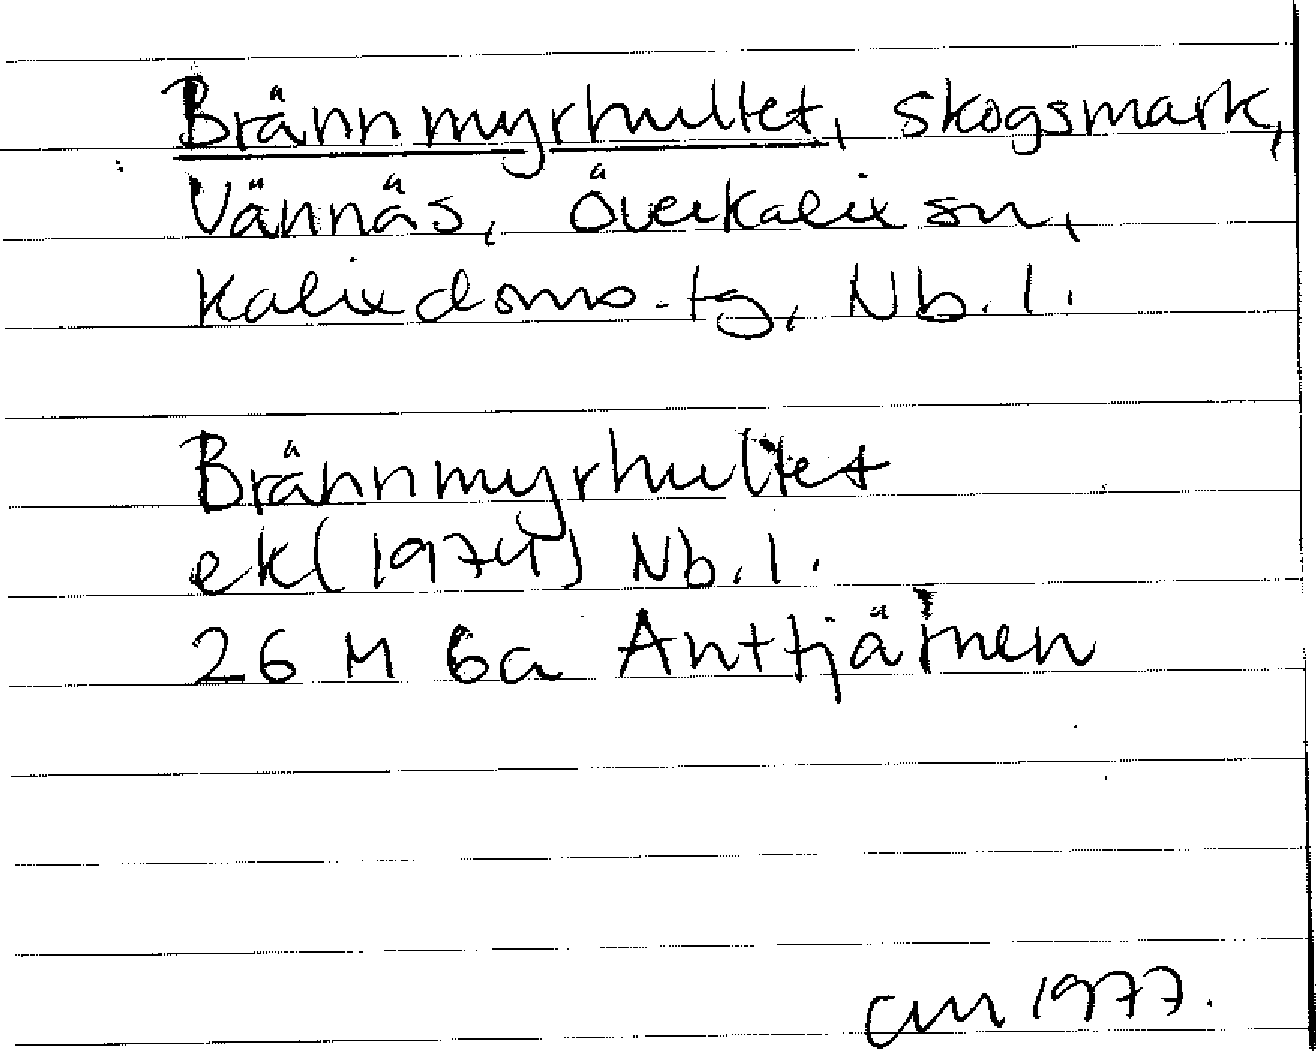 Brännmyrhultet, skogsmark,
Vännäs, Överkalix sn,
Kalix doms. tg, Nb. l.
Brännmyrhultet
ek (1974) Nb. l.
26 M 6a Anttjärnen
1977.